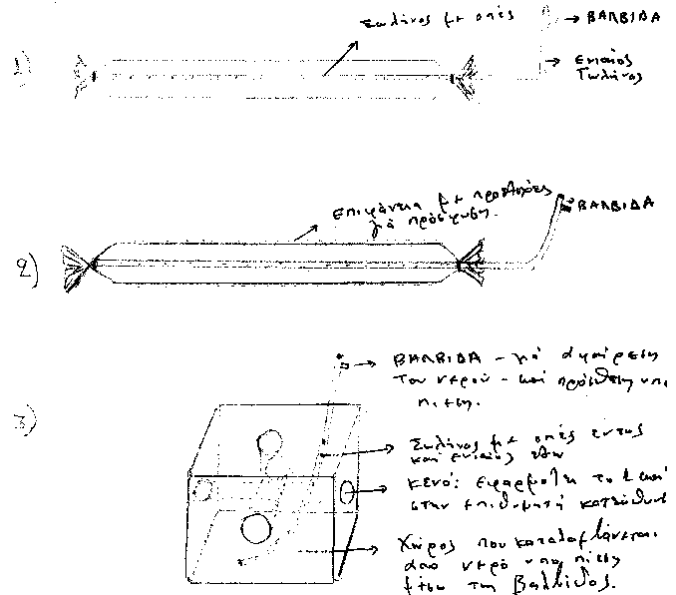 1)
Σωλήνας με οπές
→ ΒΑΛΒΙΔΑ
→ Ενιαίος
Σωλήνας
2)
Επιφάνεια με προεξοχές
γιά πρόσφυση.
ΒΑΛΒΙΔΑ
3)
→ ΒΑΛΒΙΔΑ - γιά αφαίρεση
του νερού - και πρόσθεση υπό
πίεση.
→ Σωλήνας με οπές εντός
και ενιαίος έξω
→ ΚΕΝΟ: εφαρμόζει το 1 και
στην επιθυμητή κατεύθυνση
→ Χώρος που καταλαμβάνεται
από νερό υπό πίεση
μέσω της βαλβίδος.